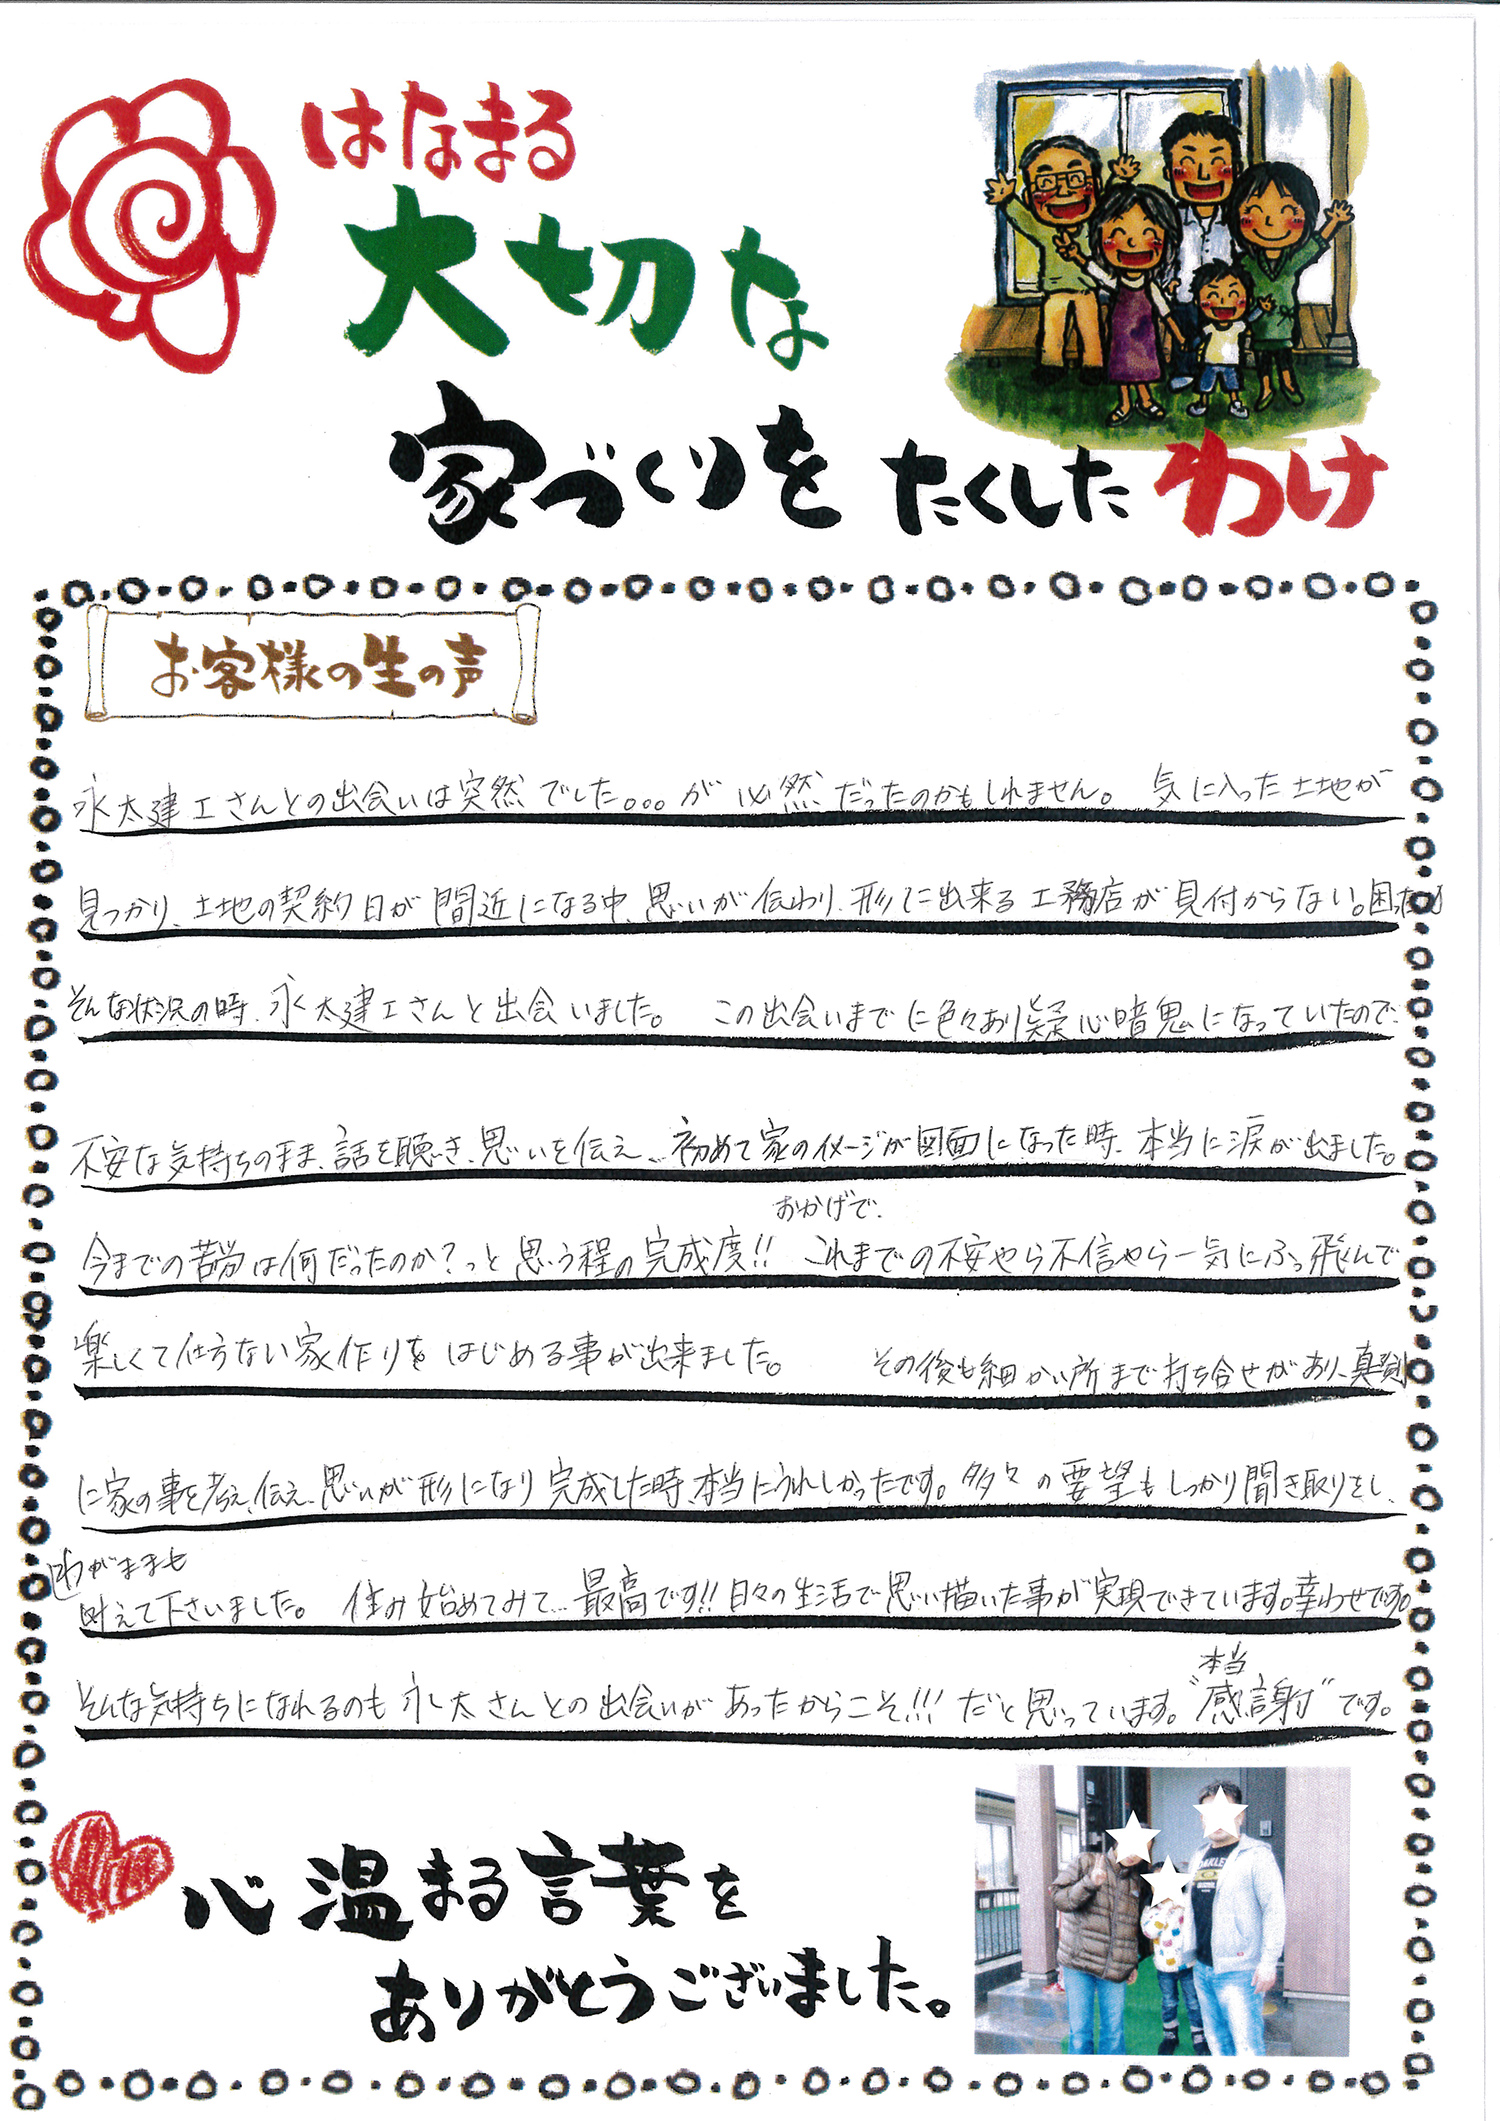 はなまる
大切な
家づくりを たくした わけ
お客様の生の声
永太建工さんとの出会いは突然でした。。。が必然だったのかもしれません。 気に入った土地が
見つかり、土地の契約日が間近になる中、思いが伝わり、形に出来る工務店が見付からない。困った
そんな状況の時、永太建工さんと出会いました。 この出会いまでに色々あり疑心暗鬼になっていたので、
不安な気持ちのまま、話を聴き、思いを伝え… 初めて家のイメージが図面になった時、本当に涙が出ました。
おかげで、
今までの苦労は何だったのか?っと思う程の完成度!! これまでの不安やら不信やら一気にふっ飛んで
楽しくて仕方ない家作りをはじめる事が出来ました。 その後も細かい所まで打ち合せがあり、真剣
に家の事を考え、伝え、思いが形になり完成した時、本当にうれしかったです。多々の要望もしっかり聞き取りをし、
わがままも
叶えて下さいました。 住み始めてみて… 最高です!!日々の生活で思い描いた事が実現できています。幸わせです。
本当
そんな気持ちになれるのも永太さんとの出会いがあったからこそ!!!だと思っています。"感謝"です。
心温まる言葉を
ありがとうございました。
OAKLEY